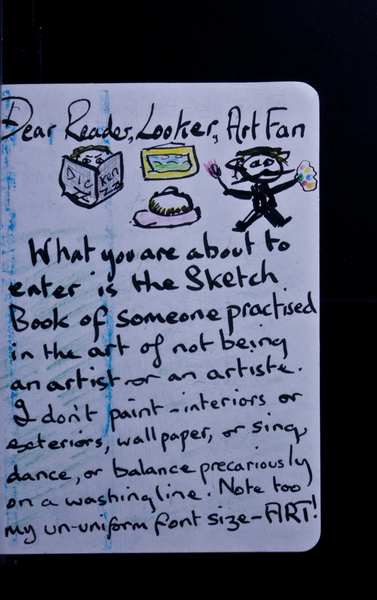 Dear Reader, Looker, Art Fan
Dic kenzz
What you are about to
enter is the Sketch
Book of someone practised
in the art of not being
an artist or an artiste.
I don't paint-interiors or
exteriors, wallpaper, or sing,
dance, or balance precariously
on a washingline. Note too
my un-uniform font size-ART!